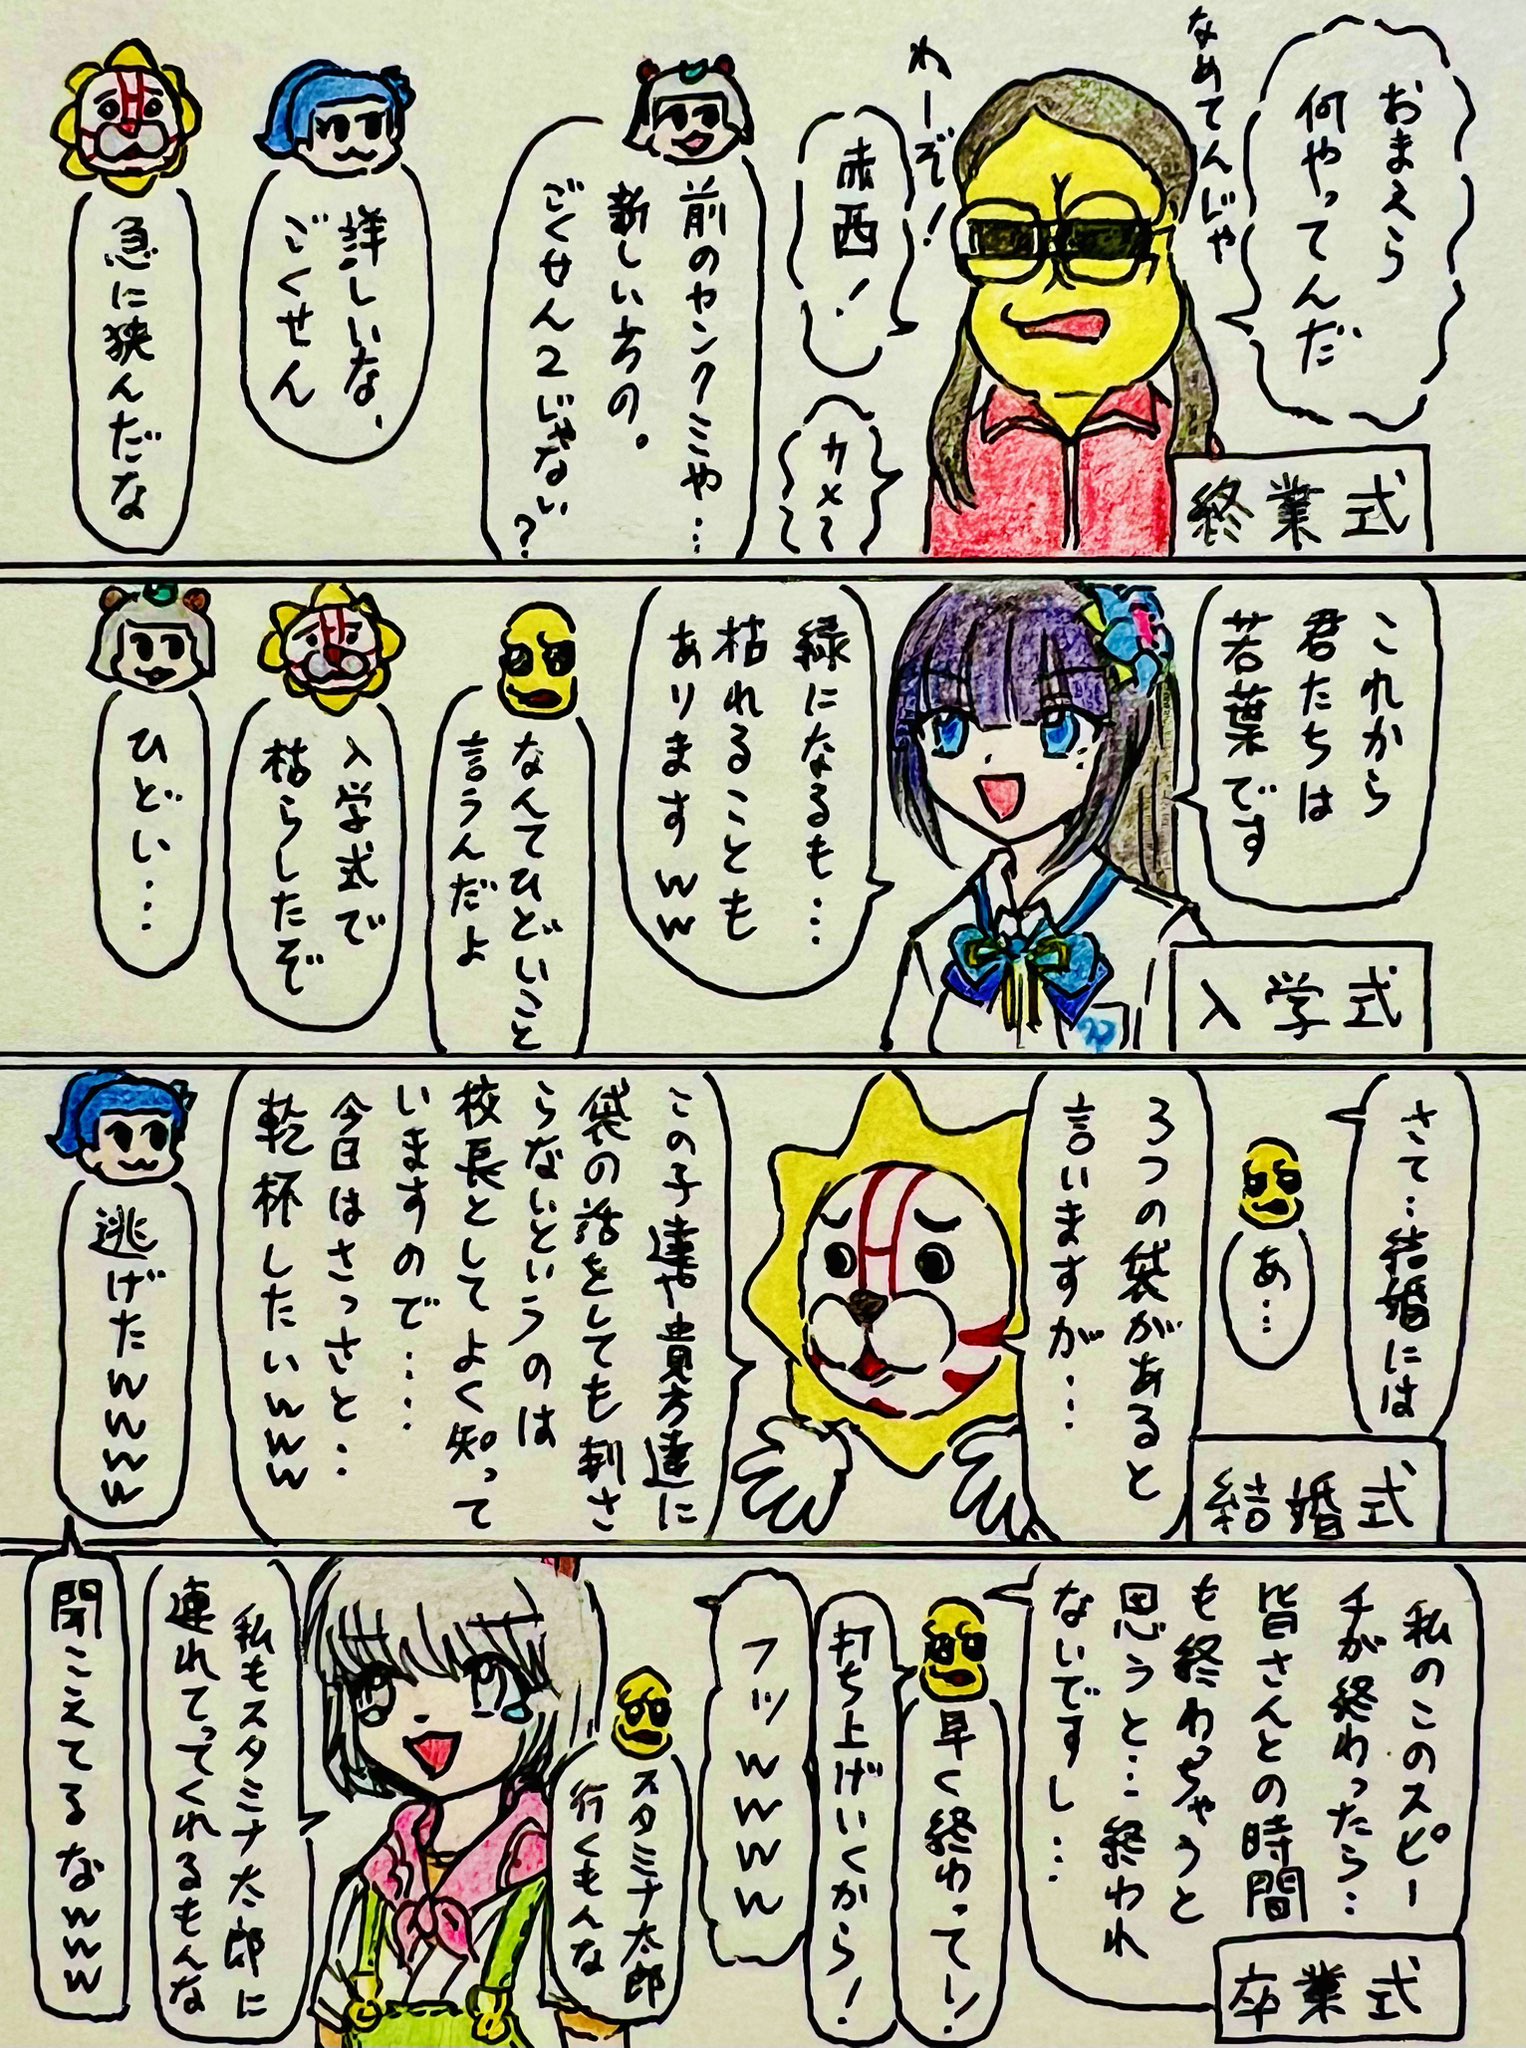 終業式
おまえら
何やってんだ
なめてんじゃ
わーぞ！
赤西！
カメ〜
前のヤンクミや…
新しい方の。
ごくせん2じゃない？
詳しいな、
ごくせん
急に狭んだな
入学式
これから
君たちは
若葉です
緑になるも…
枯れることも
ありますww
なんてひどいこと
言うんだよ
入学式で
枯らしたぞ
ひどい…
結婚式
さて…結婚には
あ…
3つの袋があると
言いますが…
この子達や貴方達に
袋の話をしても刺さ
らないというのは
校長としてよく知って
いますので……
今日はさっさと…
乾杯したいwww
逃げたwwww
卒業式
私のこのスピー
チが終わったら…
皆さんとの時間
も終わっちゃうと
思うと…終われ
ないですし…
早く終わってー！
打ち上げいくから！
フッwwww
スタミナ太郎
行くもんな
私もスタミナ太郎に
連れてってくれるもんな
聞こえてるなwww